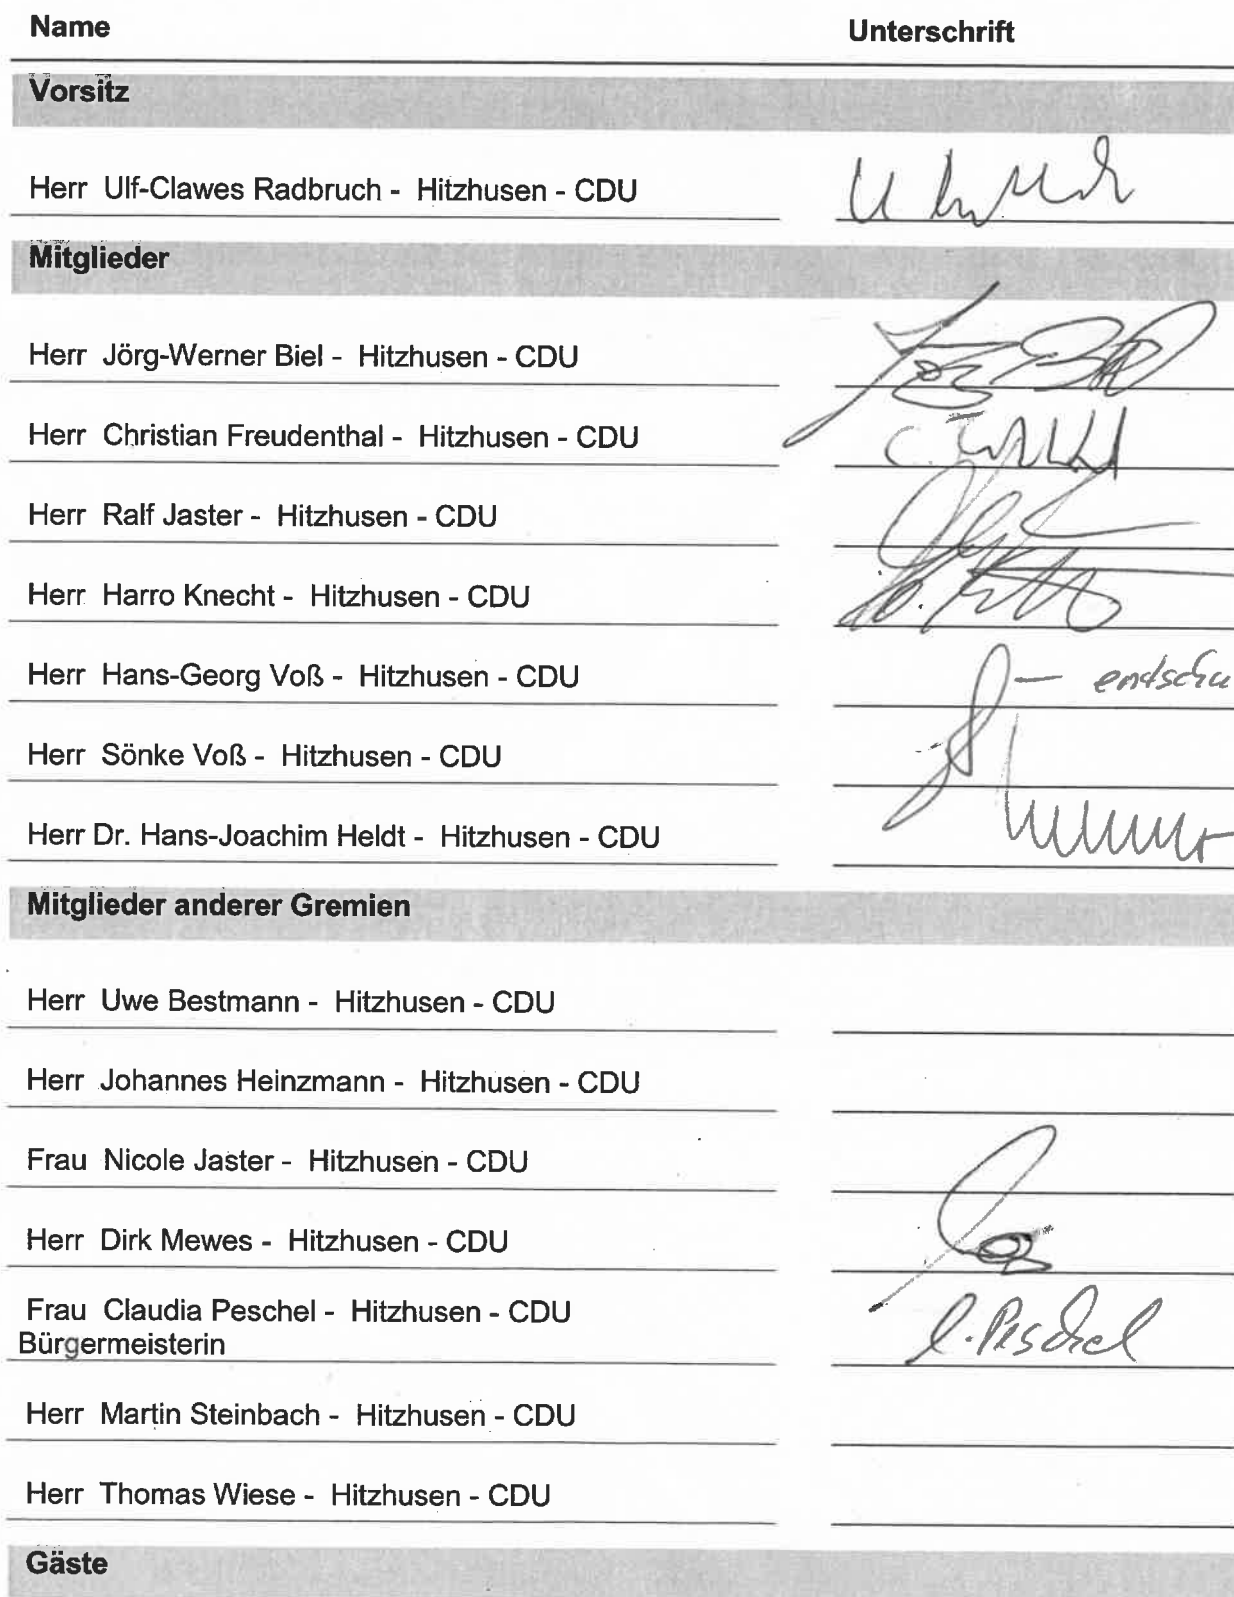 Name Unterschrift
Vorsitz
Herr Ulf-Clawes Radbruch - Hitzhusen - CDU
Mitglieder
Herr Jörg-Werner Biel - Hitzhusen - CDU
Herr Christian Freudenthal - Hitzhusen - CDU
Herr Ralf Jaster - Hitzhusen - CDU
Herr Harro Knecht - Hitzhusen - CDU
Herr Hans-Georg Voß - Hitzhusen - CDU
Herr Sönke Voß - Hitzhusen - CDU
Herr Dr. Hans-Joachim Heldt - Hitzhusen - CDU
Mitglieder anderer Gremien
Herr Uwe Bestmann - Hitzhusen - CDU
Herr Johannes Heinzmann - Hitzhusen - CDU
Frau Nicole Jaster - Hitzhusen - CDU
Herr Dirk Mewes - Hitzhusen - CDU
Frau Claudia Peschel - Hitzhusen - CDU C. Peschel
Bürgermeisterin
Herr Martin Steinbach - Hitzhusen - CDU
Herr Thomas Wiese - Hitzhusen - CDU
Gäste